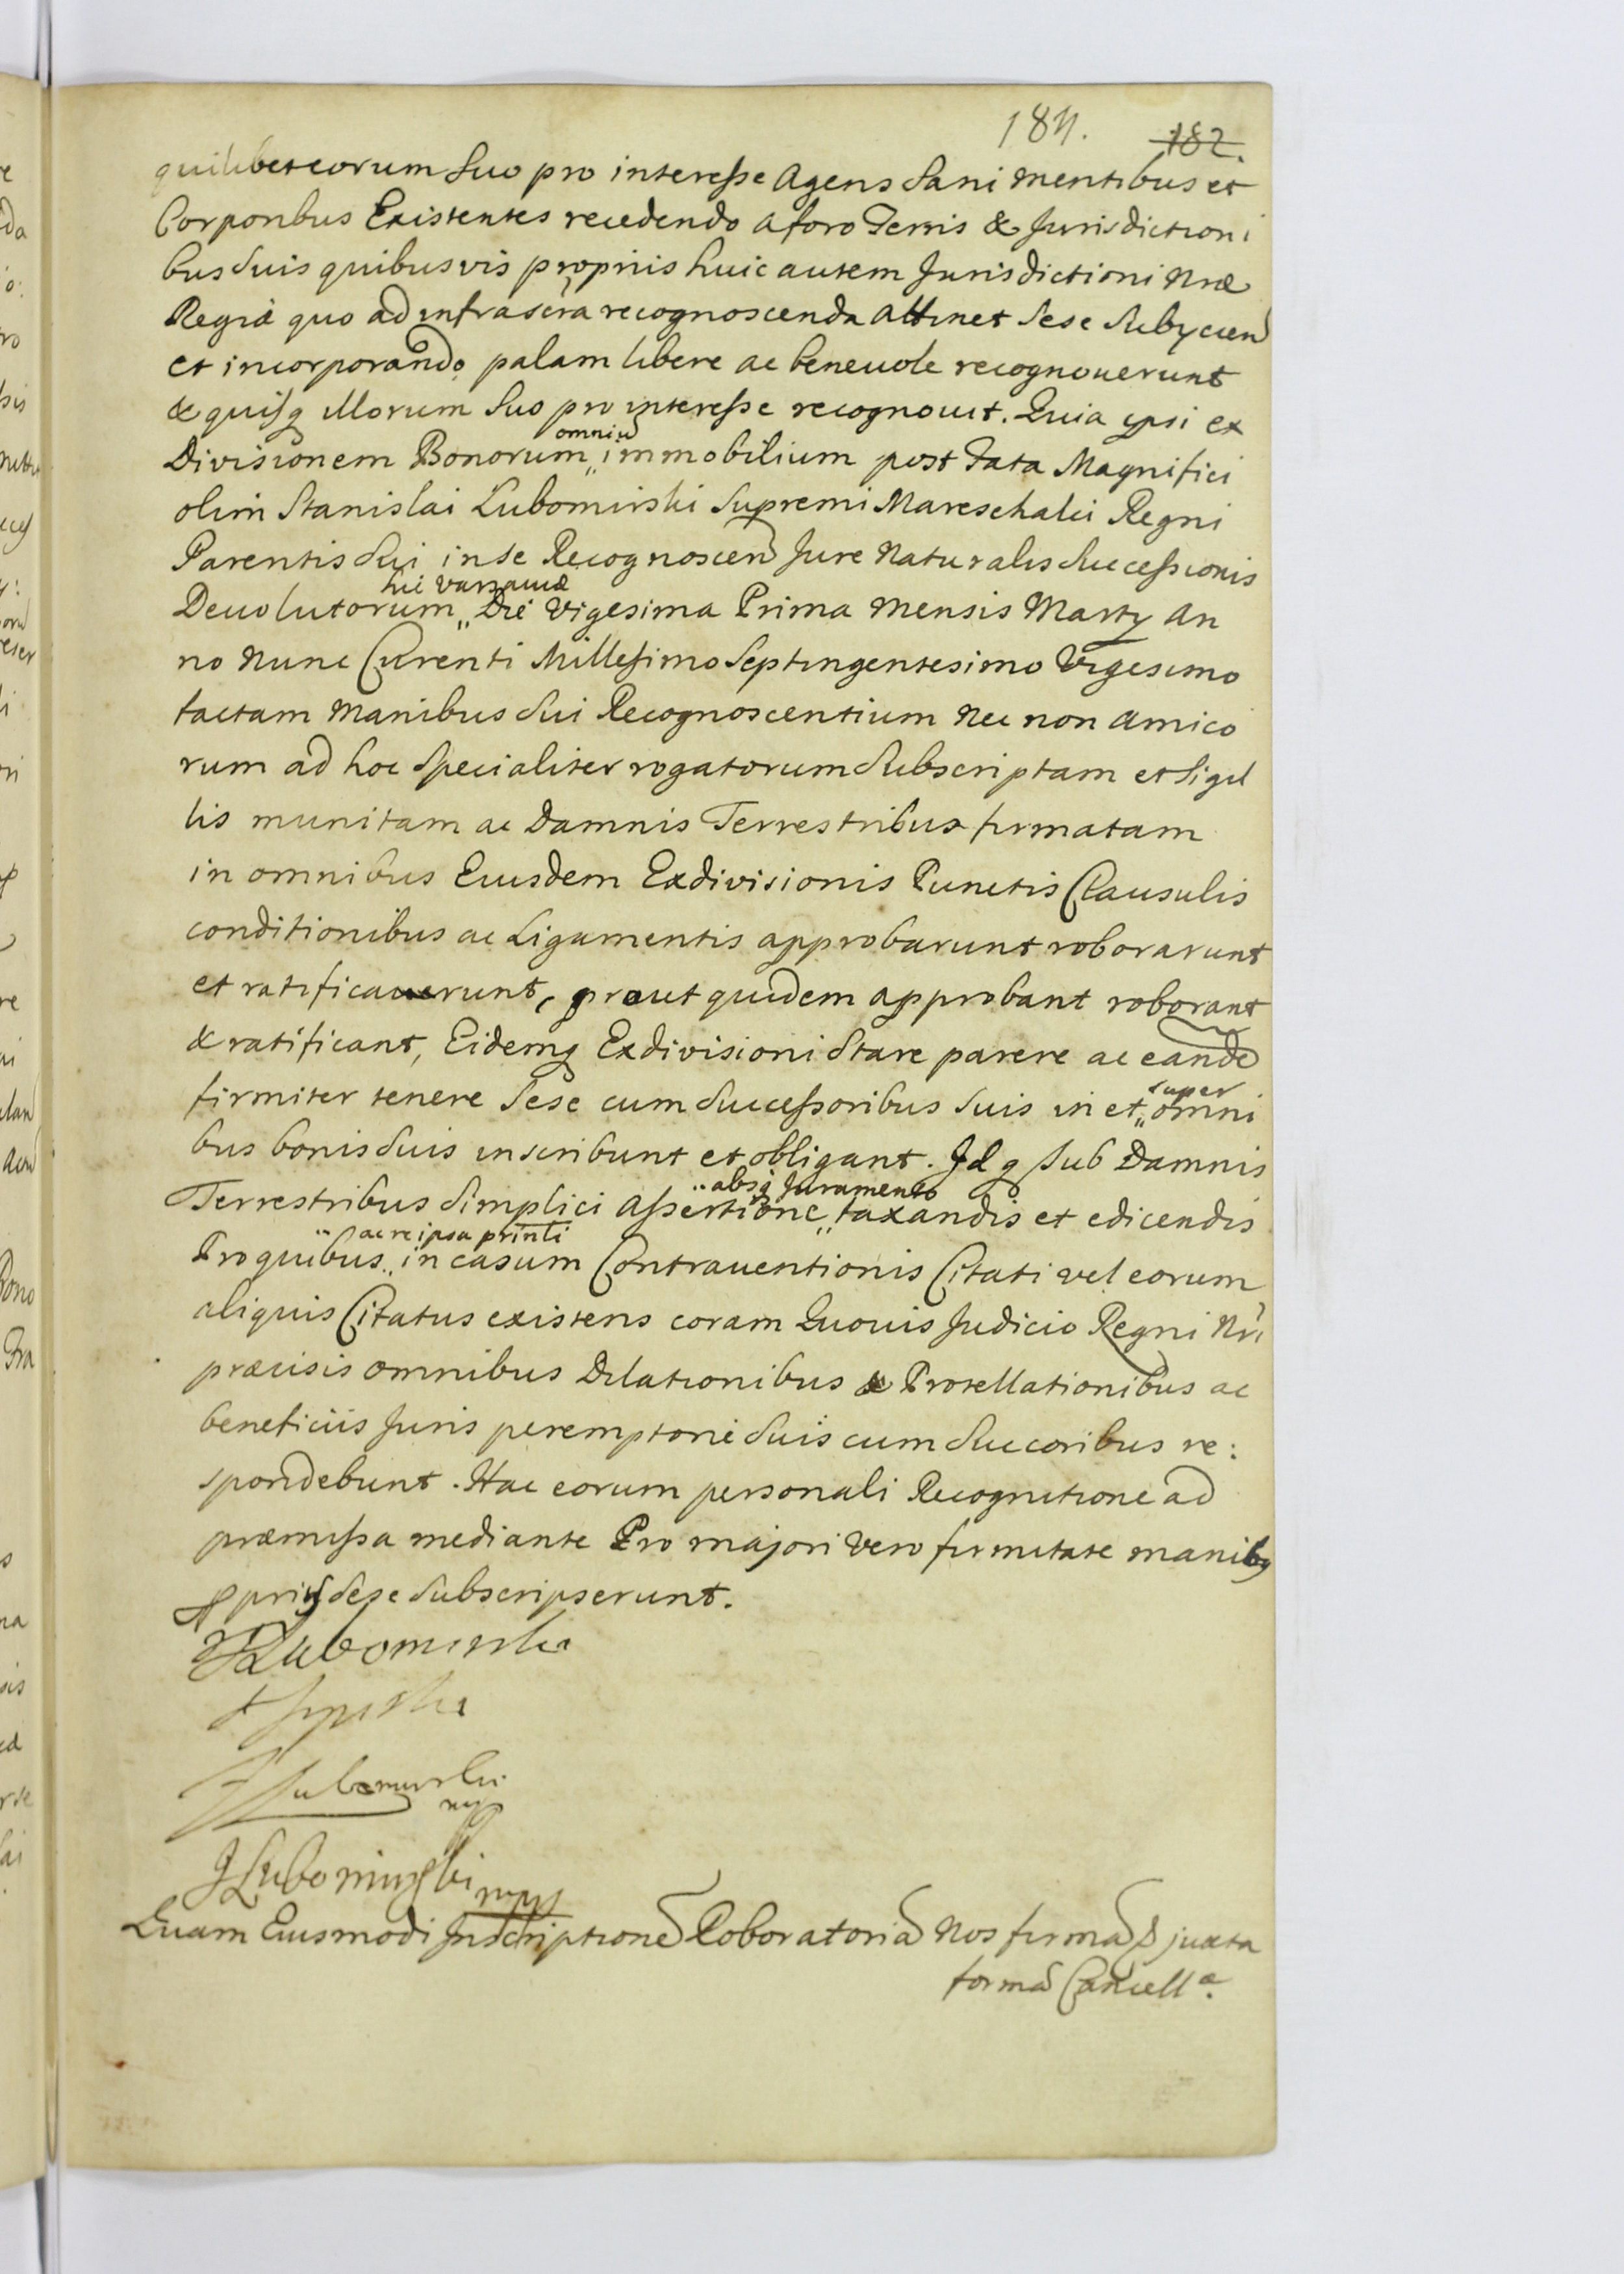 184. 182.
quilibet eorum Suo pro interesse Agens Sani Mentibus et
Corporibus Existentes recedendo a foro Terris & Jurisdictioni
bus Suis quibusvis proprijs huic autem Jurisdictioni Nrae
Regiae quo ad infrascra recognoscenda Attinet Sese Subycien
et incorporando palam libere ac beneuole recognouerunt
& quisq illorum Suo pro interesse recognouit. Quia ipsi Ex
omniu
Divisionem Bonorum immobilium post Fata Magnifici
olim Stanislai Lubomirski Supremi Mareschalci Regni
Parentis Sui in Se Recognoscen Jure Naturalis Successionis
hic Varsauiae
Deuolutorum Die Vigesima Prima Mensis Marty An
no Nunc Currenti Millesimo Septingentesimo Vigesimo
factam Manibus Sui Recognoscentium Nec non Amico
rum ad hoc Specialiter rogatorum Subscriptam et Sigil
lis munitam ac Damnis Terrestribus firmatam
in omnibus Eiusdem Exdivisionis Punctis Clausulis
conditionibus ac Ligamentis approbarunt roborarunt
et ratificauerunt, prout quidem approbant roborant
& ratificant, Eidemq Exdivisioni Stare parere ac eande
super
firmiter tenere Sese cum Successoribus Suis in et omni
bus bonis Suis inscribunt et obligant. Idq sub Damnis
absq Juramento
Terrestribus Simplici Assertione taxandis et edicendis
ac re ipsa
Pro quibus in casum Contrauentionis Citati vel eorum
aliquis Citatus existens coram Quouis Judicio Regni Nri
praecisis omnibus Dilationibus & Protellationibus ac
beneficiis Juris peremptorie Suis cum Succoribus re:
spondebunt. Hac eorum personali Recognitione ad
praemissa mediante Pro majori Vero firmitate manibq
pprijs Sese Subscripserunt.
Lubomirska
Lubomirski
mp
J Lubomirski
mpp
Quam Eiusmodi Inscriptione Roboratoria Nos firma juxta
forma Cancellae.